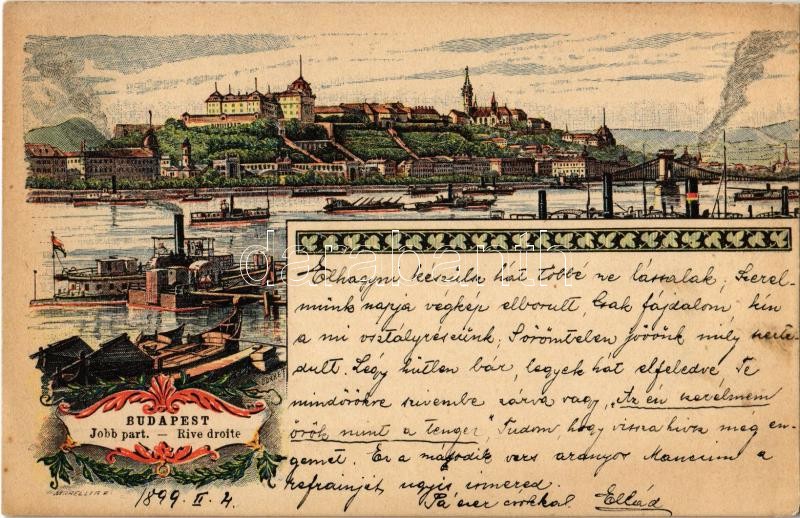 Elhagyni készülsz hát többé ne lássalak, Szerel-
münk napja végkép elborult, Csak fájdalom kín
a mi osztályrészünk, Sörömtelen jövőnk mily
dult. Légy hűtlen bár, legyek hát elfeledve Te
mindörökre szivembe zárva vagy, "Az én szerelmem
örök mint a tenger," Tudom, hogy vissza hivsz még en-
gemet. Ez a második vers aranyos Mancium a
refrainjét ugyis ismered.
Pá ezer csókkal Elkád
BUDAPEST
Jobb part. — Rive droite
MORELLI R.
1899. II. 4.
darabanth